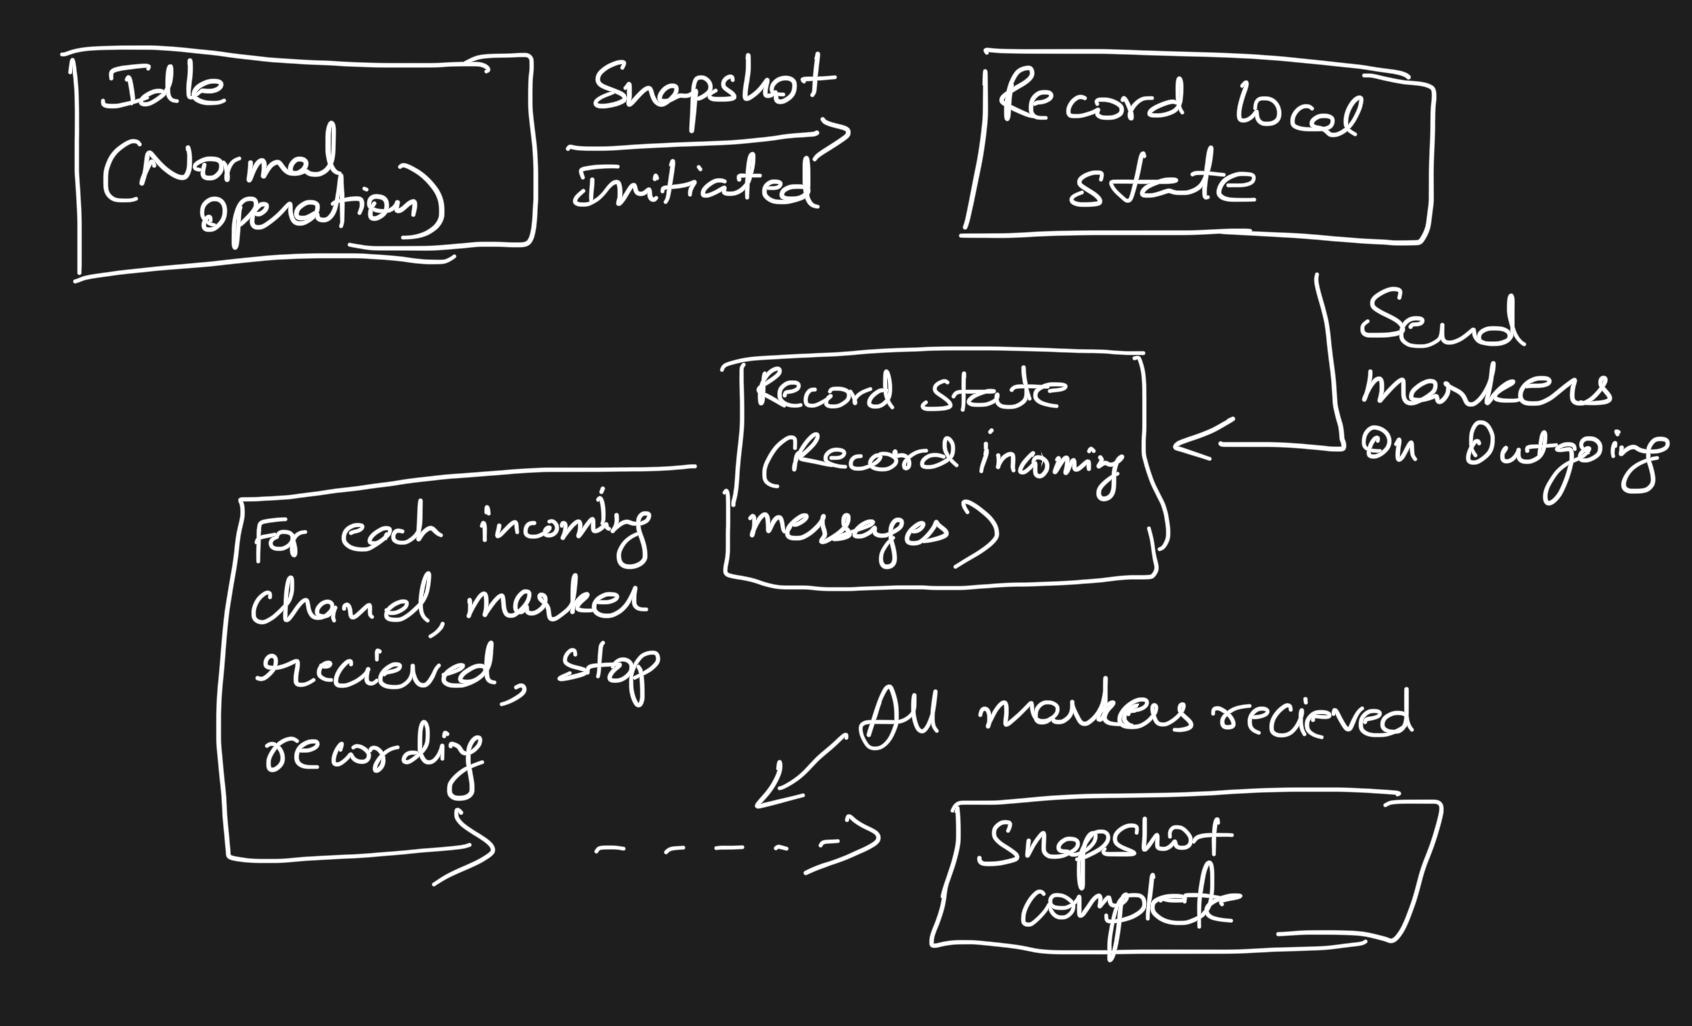 Idle
(Normal
operation)
Snapshot
Initiated
Record local
state
Send
markers
on Outgoing
Record state
(Record incoming
messages)
For each incoming
chanel, marker
recieved, stop
recording
All markers recieved
Snapshot
complete